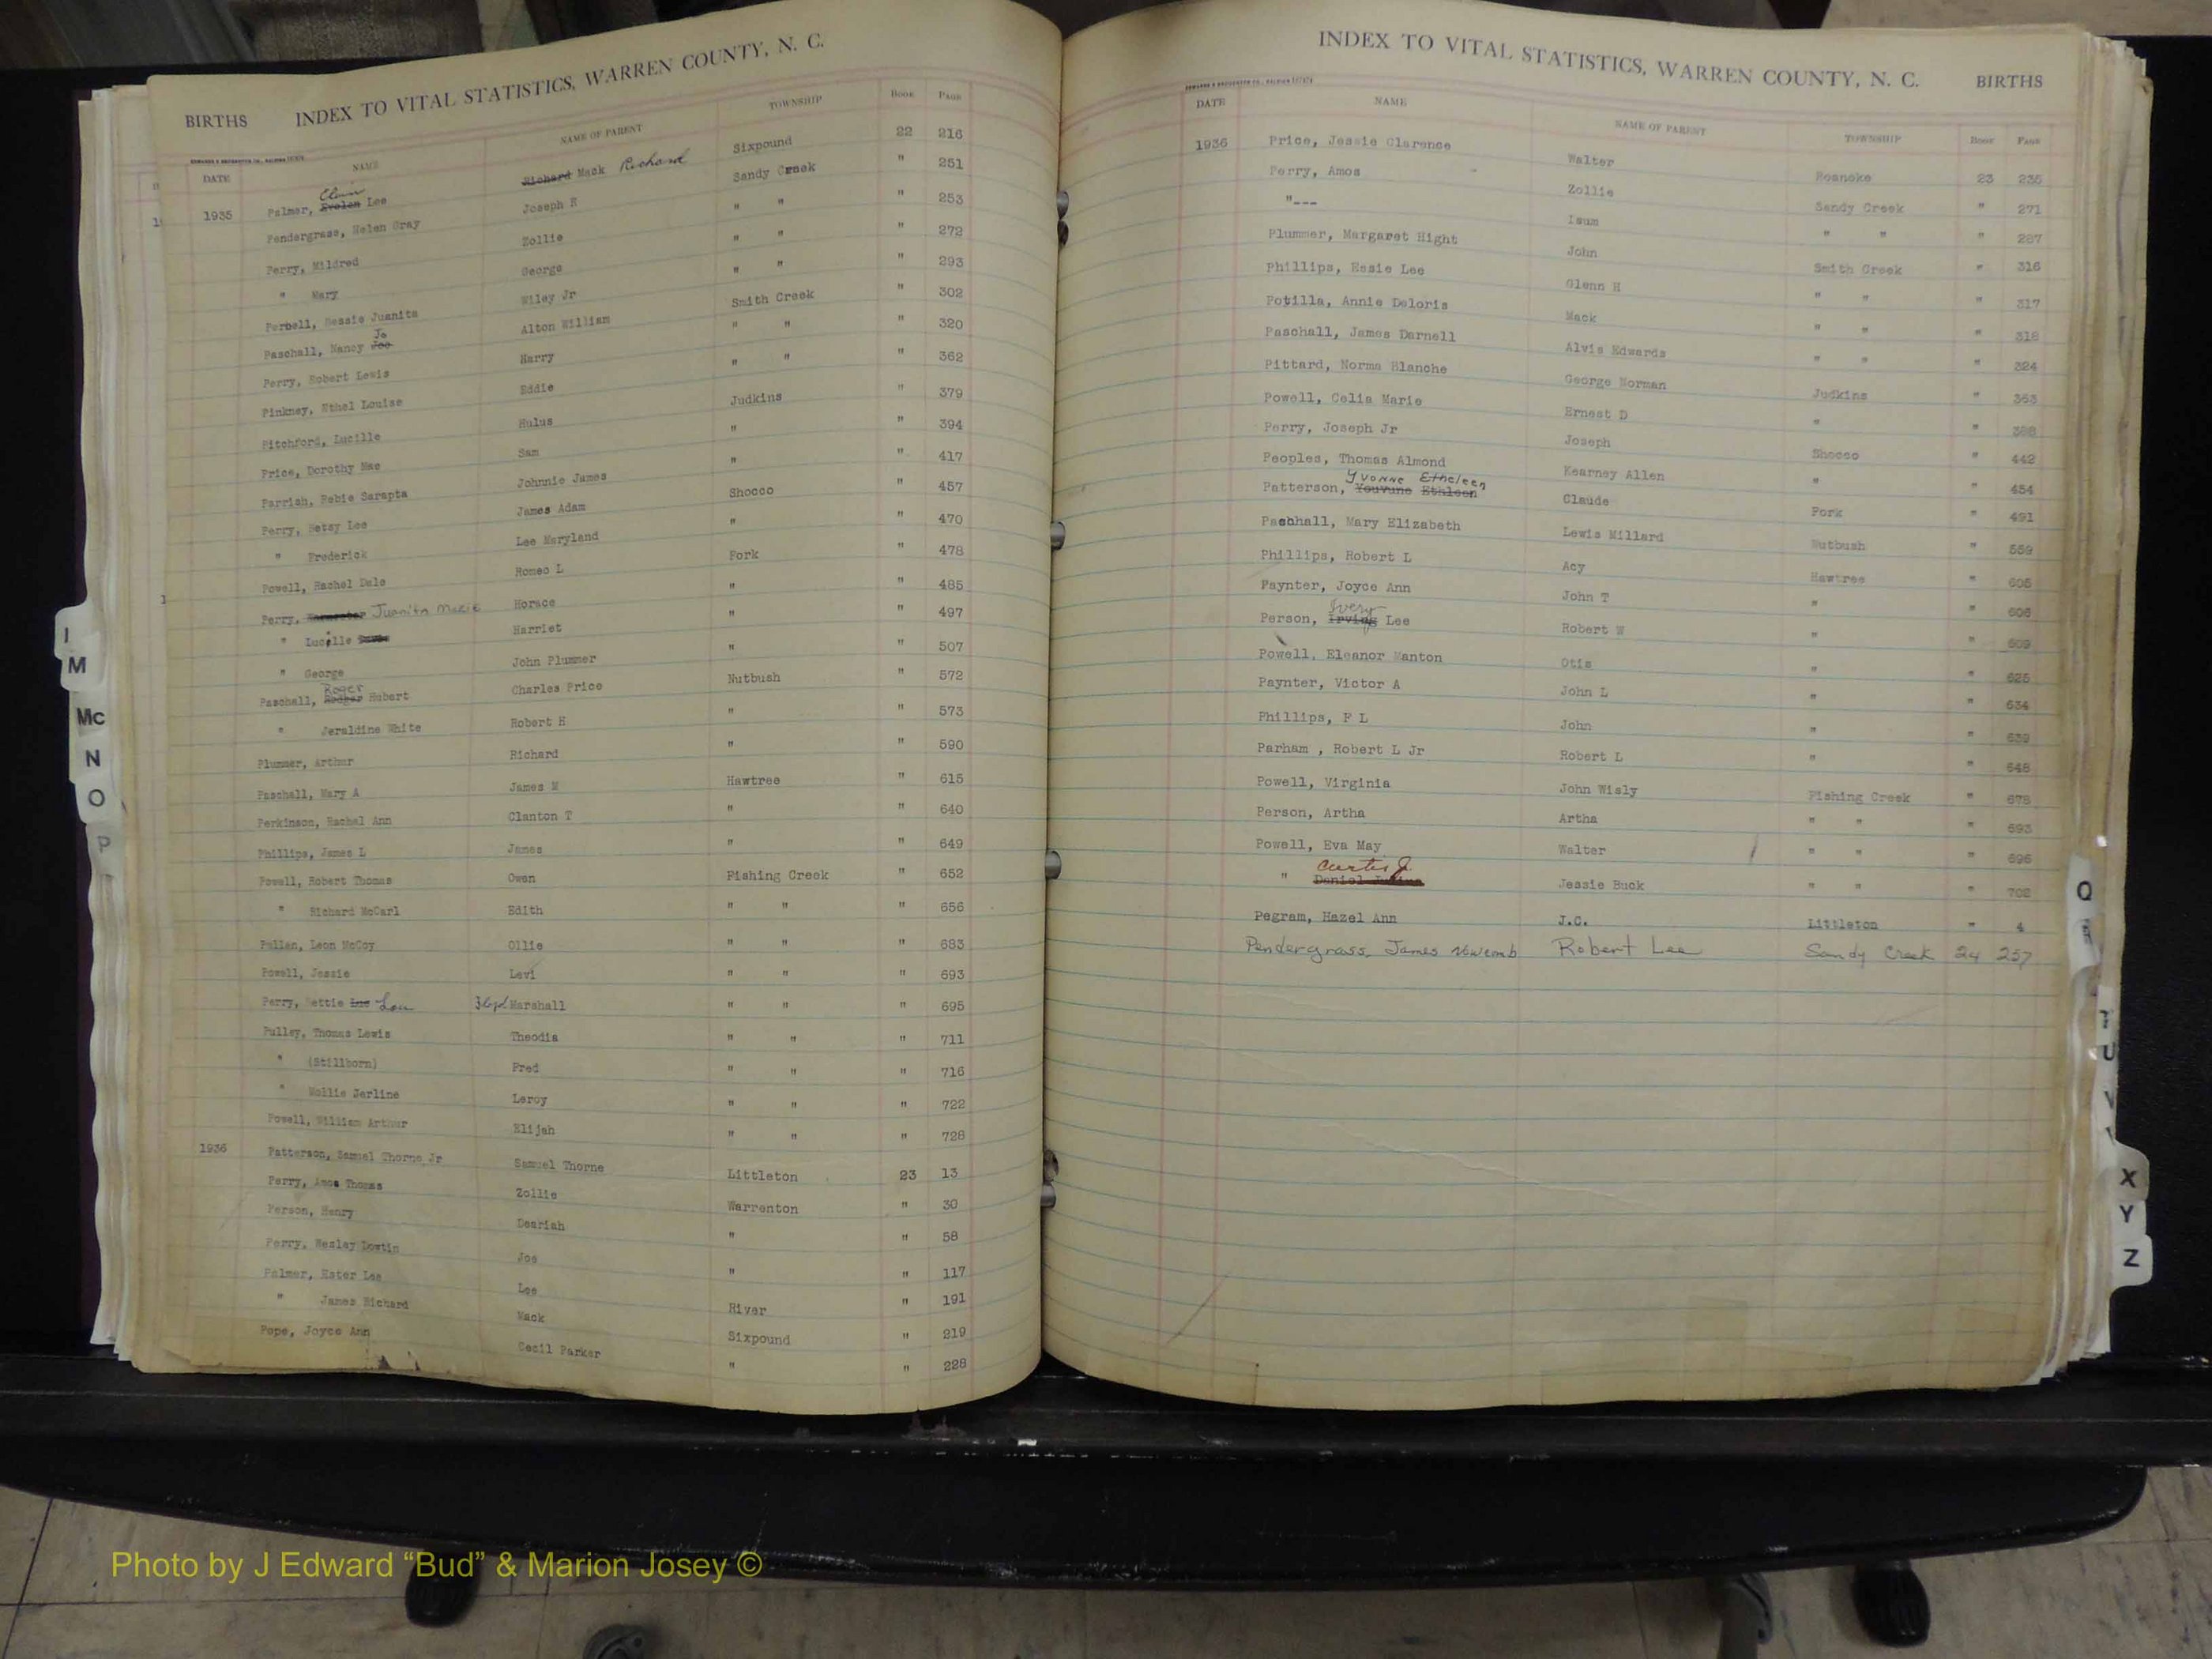 INDEX TO VITAL STATISTICS, WARREN COUNTY, N. C.
BIRTHS
DATE NAME NAME OF PARENT TOWNSHIP BOOK PAGE
1935 Palmer, Elvin Lee Richard Mack Richard Sixpound 22 216
Pendergrass, Helen Gray Joseph R Sandy Creek " 251
Perry, Mildred Zollie " " " 253
" Mary George " " " 272
Perbell, Bessie Juanita Wiley Jr " " " 293
Paschall, Nancy Joe Jo Alton William Smith Creek " 302
Perry, Robert Lewis Harry " " " 320
Pinkney, Ethel Louise Eddie " " " 362
Pitchford, Lucille Hulus Judkins " 379
Price, Dorothy Mae Sam " " 394
Parrish, Robie Sarapta Johnnie James " " 417
Perry, Betsy Lee James Adam Shocco " 457
" Frederick Lee Maryland " " 470
Powell, Rachel Dale Romeo L Fork " 478
Perry, Juanita Marie Horace " " 485
" Lucille Harriet " " 497
" George John Plummer " " 507
Paschall, Rodger Roger Hubert Charles Price Nutbush " 572
" Jeraldine White Robert H " " 573
Plummer, Arthur Richard " " 590
Paschall, Mary A James M Hawtree " 615
Perkinson, Rachel Ann Clanton T " " 640
Phillips, James L James " " 649
Powell, Robert Thomas Owen Fishing Creek " 652
" Richard McCarl Edith " " " 656
Pullen, Leon McCoy Ollie " " " 683
Powell, Jessie Levi " " " 693
Perry, Nettie Lue Lou Marshall " " " 695
Pulley, Thomas Lewis Theodis " " " 711
" (Stillborn) Fred " " " 716
" Mollie Jerline Leroy " " " 722
Powell, William Arthur Elijah " " " 728
1936 Patterson, Samuel Thorne Jr Samuel Thorne Littleton 23 13
Perry, Amos Thomas Zollie Warrenton " 30
Person, Henry Deariah " " 58
Perry, Wesley Dowtin Joe " " 117
Palmer, Ester Lee Lee River " 191
" James Richard Mack Sixpound " 219
Pope, Joyce Ann Cecil Parker " " 228
INDEX TO VITAL STATISTICS, WARREN COUNTY, N. C.
BIRTHS
DATE NAME NAME OF PARENT TOWNSHIP BOOK PAGE
1936 Price, Jessie Clarence Walter Roanoke 23 235
Perry, Amos Zollie Sandy Creek " 271
"--- Isum " " " 287
Plummer, Margaret Hight John Smith Creek " 316
Phillips, Essie Lee Glenn H " " " 317
Potilla, Annie Deloris Mack " " " 318
Paschall, James Darnell Alvis Edwards " " " 324
Pittard, Norma Blanche George Norman Judkins " 353
Powell, Celia Marie Ernest D " " 388
Perry, Joseph Jr Joseph Shocco " 442
Peoples, Thomas Almond Kearney Allen " " 454
Patterson, Youvune Ethleen Yvonne Etheleen Claude Fork " 491
Paschall, Mary Elizabeth Lewis Millard Nutbush " 559
Phillips, Robert L Acy Hawtree " 605
Paynter, Joyce Ann John T " " 606
Person, Irving Ivery Lee Robert W " " 609
Powell, Eleanor Manton Otis " " 625
Paynter, Victor A John L " " 634
Phillips, F L John " " 639
Parham , Robert L Jr Robert L " " 648
Powell, Virginia John Wisly Fishing Creek " 678
Person, Artha Artha " " " 693
Powell, Eva May Walter " " " 696
" Daniel Julius Curtis J Jessie Buck " " " 702
Pegram, Hazel Ann J.C. Littleton " 4
Pendergrass, James Robert Lee Sandy Creek 24 257
I
M
Mc
N
O
P
Q
U
V
X
Y
Z
Photo by J Edward “Bud” & Marion Josey ©